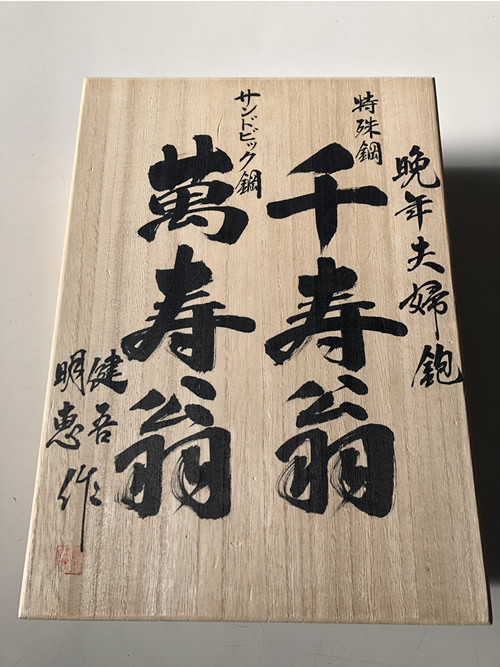 晩年夫婦鉋
特殊鋼
千寿翁
サンドビック鋼
萬寿翁
健吾
明恵作